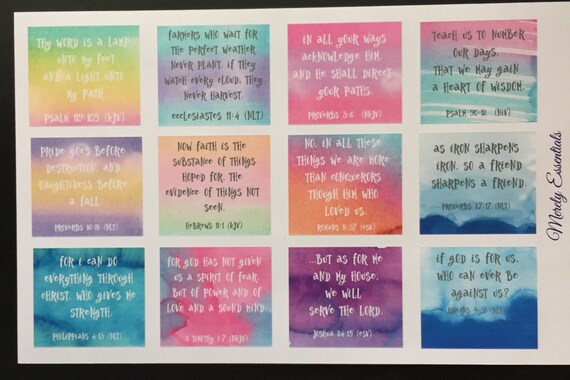 THY WORD IS A LAMP
UNTO MY FEET
AND A LIGHT UNTO
MY PATH.
PSALM 119:105 (KJV)
FARMERS WHO WAIT FOR
THE PERFECT WEATHER
NEVER PLANT. IF THEY
WATCH EVERY CLOUD, THEY
NEVER HARVEST.
ECCLESIASTES 11:4 (NLT)
IN ALL YOUR WAYS
ACKNOWLEDGE HIM,
AND HE SHALL DIRECT
YOUR PATHS.
PROVERBS 3:6 (NKJV)
TEACH US TO NUMBER
OUR DAYS,
THAT WE MAY GAIN
A HEART OF WISDOM.
PSALM 90:12 (NIV)
PRIDE GOES BEFORE
DESTRUCTION, AND
HAUGHTINESS BEFORE
A FALL
PROVERBS 16:18 (NLT)
NOW FAITH IS THE
SUBSTANCE OF THINGS
HOPED FOR, THE
EVIDENCE OF THINGS NOT
SEEN.
HEBREWS 11:1 (KJV)
NO, IN ALL THESE
THINGS WE ARE MORE
THAN CONQUERORS
THOUGH HIM WHO
LOVED US.
ROMANS 8:37 (ESV)
AS IRON SHARPENS
IRON, SO A FRIEND
SHARPENS A FRIEND.
PROVERBS 27:17 (NLT)
FOR I CAN DO
EVERYTHING THROUGH
CHRIST, WHO GIVES ME
STRENGTH.
PHILIPPIANS 4:13 (NLT)
FOR GOD HAS NOT GIVEN
US A SPIRIT OF FEAR,
BUT OF POWER AND OF
LOVE AND A SOUND MIND
2 TIMOTHY 1:7 (NKJV)
...BUT AS FOR ME
AND MY HOUSE,
WE WILL
SERVE THE LORD.
JOSHUA 24:15 (ESV)
IF GOD IS FOR US,
WHO CAN EVER BE
AGAINST US?
(NLT)
Merdy Essentials